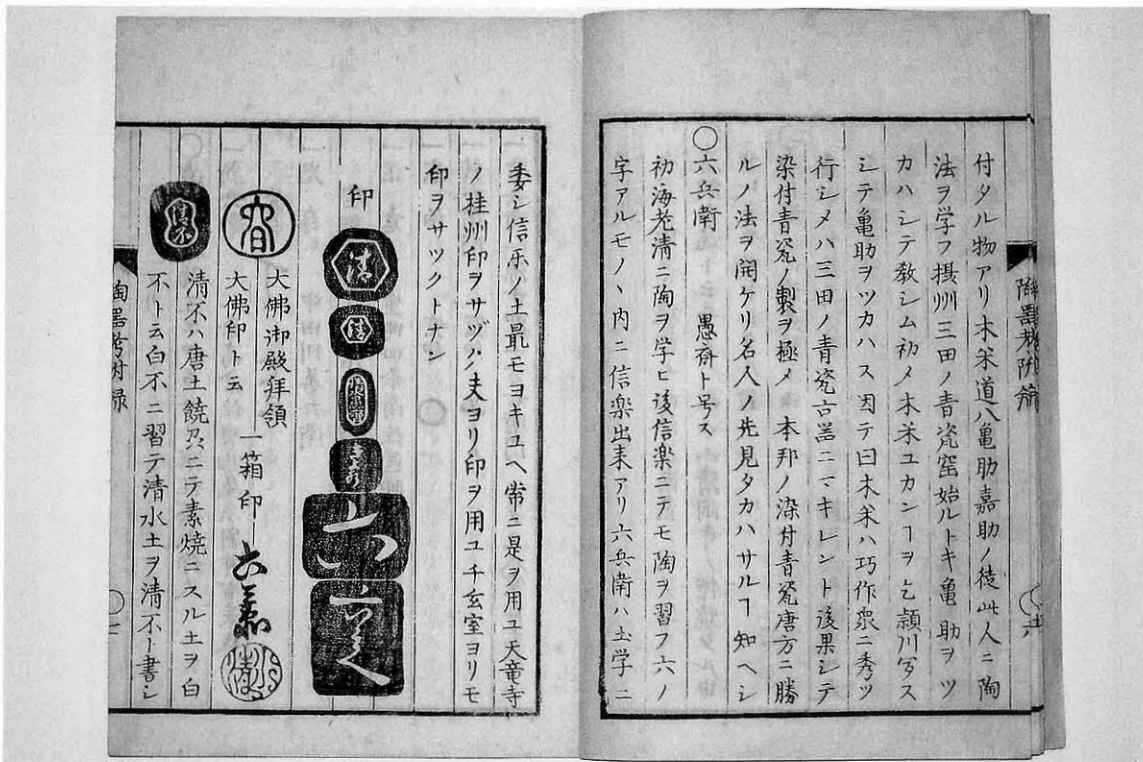 付タル物アリ木米道八亀助嘉助ノ徒此人ニ陶
法ヲ学フ摂州三田ノ青瓷窑始ルトキ亀助ヲツ
カハシテ教シム初メ木米ユカンヿヲ乞頴川写ス
シテ亀助ヲツカハス因テ曰木米ハ巧作衆ニ秀ツ
行シメハ三田ノ青瓷古噐ニマキレント後果シテ
染付青瓷ノ製ヲ極メ本邦ノ染付青瓷唐方ニ勝
ルノ法ヲ開ケリ名人ノ先見タカハサルヿ知ヘシ
○六兵衛 愚斎ト号ス
初海老清ニ陶ヲ学ヒ後信楽ニテモ陶ヲ習フ六ノ
字アルモノヽ内ニ信楽出来アリ六兵衛ハ土学ニ
委シ信乐ノ土最モヨキユヘ常ニ是ヲ用ユ天竜寺
ノ桂州印ヲサヅハ夫ヨリ印ヲ用ユ千玄室ヨリモ
印ヲサツクトナン
印
清
清
六
大佛御殿拝領
大佛印ト云
一箱印
清不ハ唐土饒
ニテ素焼ニスル土ヲ白
不ト云白不ニ習テ清水土ヲ清不ト書シ
清不
陶噐考附録